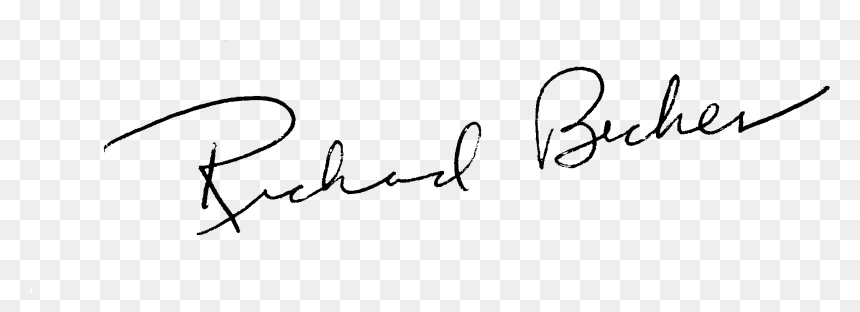 Richard Becher